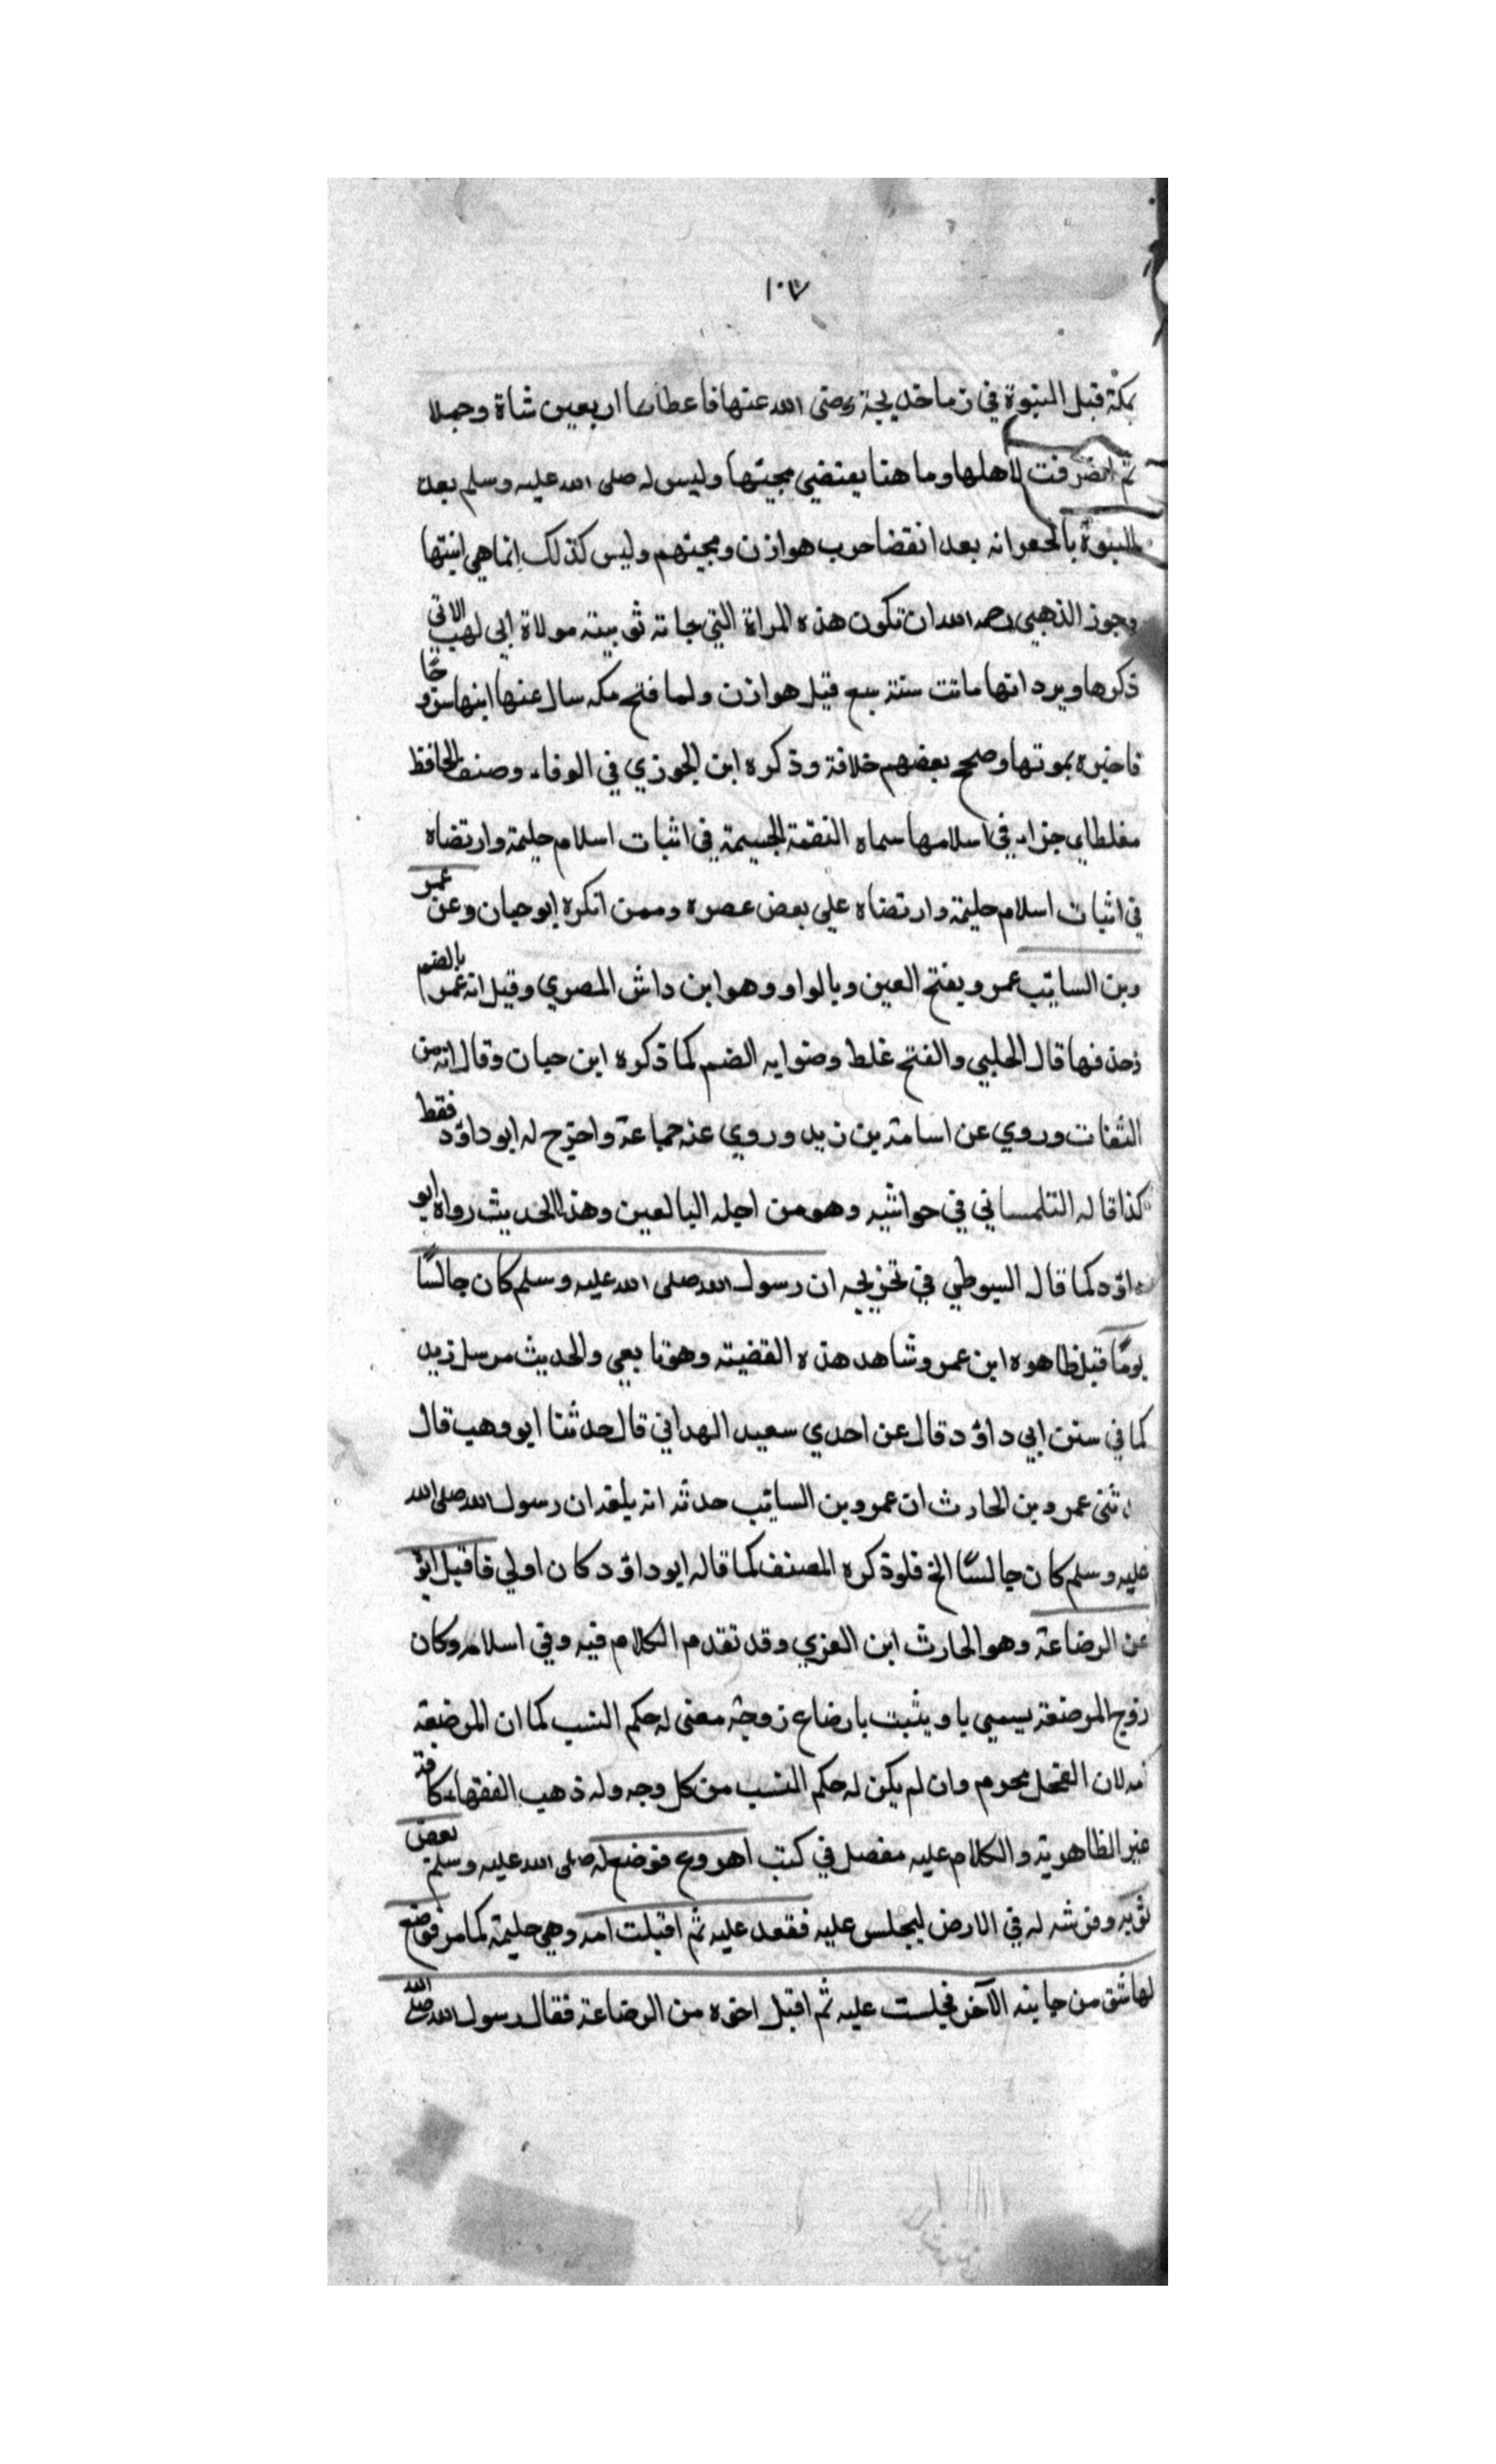 ١٠٧
بمكة قبل النبوة في زماخديجة رضى الله عنها فاعطاها اربعين شاة وجملا
ثم انصرفت لاهلها وما هنا يقتضي مجيئها وليس له صلى الله عليه وسلم بعد
النبوة بالجعرانه بعد انقضا حرب هوازن ومجيئهم وليس كذلك انما هي ابنتها
وجوز الذهبي رحمه الله ان تكون هذه المراة التي جاته ثويبته مولاة ابي لهب الاتي
ذكرها ويرد انها ماتت سنة سبع قبل هوازن ولما فتح مكه سال عنها ابنها مسروحا
فاخبره بموتها وصحح بعضهم خلافة وذكره ابن الجوزي في الوفاء وصنف الحافظ
مغلطاي جزاء في اسلامها سماه النقمة الجسيمة في اثبات اسلام حليمة وارتضاه
في اثبات اسلام حليمة وارتضاه علي بعض عصره وممن انكره ابو حيان وعن عمر
وبن السايب عمرو بفتح العين وبالواو وهو ابن داش المصري وقيل انه عمر بالضم
وحذفها قال الحلبي والفتح غلط وصوابه الضم كما ذكره ابن حبان وقال انه من
الثقات وروي عن اسامة بن زيد وروي عنه جماعة واخرج له ابو داؤد فقط
كذا قاله التلمساني في حواشيه وهو من اجله البالعين وهذا الحديث رواه ابو
داؤد كما قال السيوطي في تخريجه ان رسول الله صلى الله عليه وسلم كان جالسًا
يومًا قبل ظاهره ابن عمر وشاهد هذه القضيته وهو تابعي والحديث مرسل زيد
كما في سنن ابي داؤد قال عن احدي سعيد الهداني قال حدثنا ابو وهب قال
دثنى عمرو بن الحارث ان عمرو بن السايب حدثه انه بلغه ان رسول الله صلى الله
عليه وسلم كان جالسًا الخ فلو ذكره المصنف كما قاله ابو داؤد كان اولي فاقبل ابؤ
عن الرضاعة وهو الحارث ابن العزي وقد تقدم الكلام فيه وفي اسلامه وكان
زوج المرضعة يسمي با ويثبت بارضاع زوجته معنى له حكم النسب كما ان المرضعة
امه لان الفحل محرم وان لم يكن له حكم النسب من كل وجه وله ذهب الفقهاء كافة
غير الظاهرية والكلام عليه مفصل في كتب اهروع فوضع له صلى الله عليه وسلم بعض
ثوبه وفرشه له في الارض ليجلس عليه فقعد عليه ثم اقبلت امه وهي حليمة كمامر فوضع
لها شق من جانبه الآخر فجلست عليه ثم اقبل اخوه من الرضاعة فقال رسول الله صلى الله